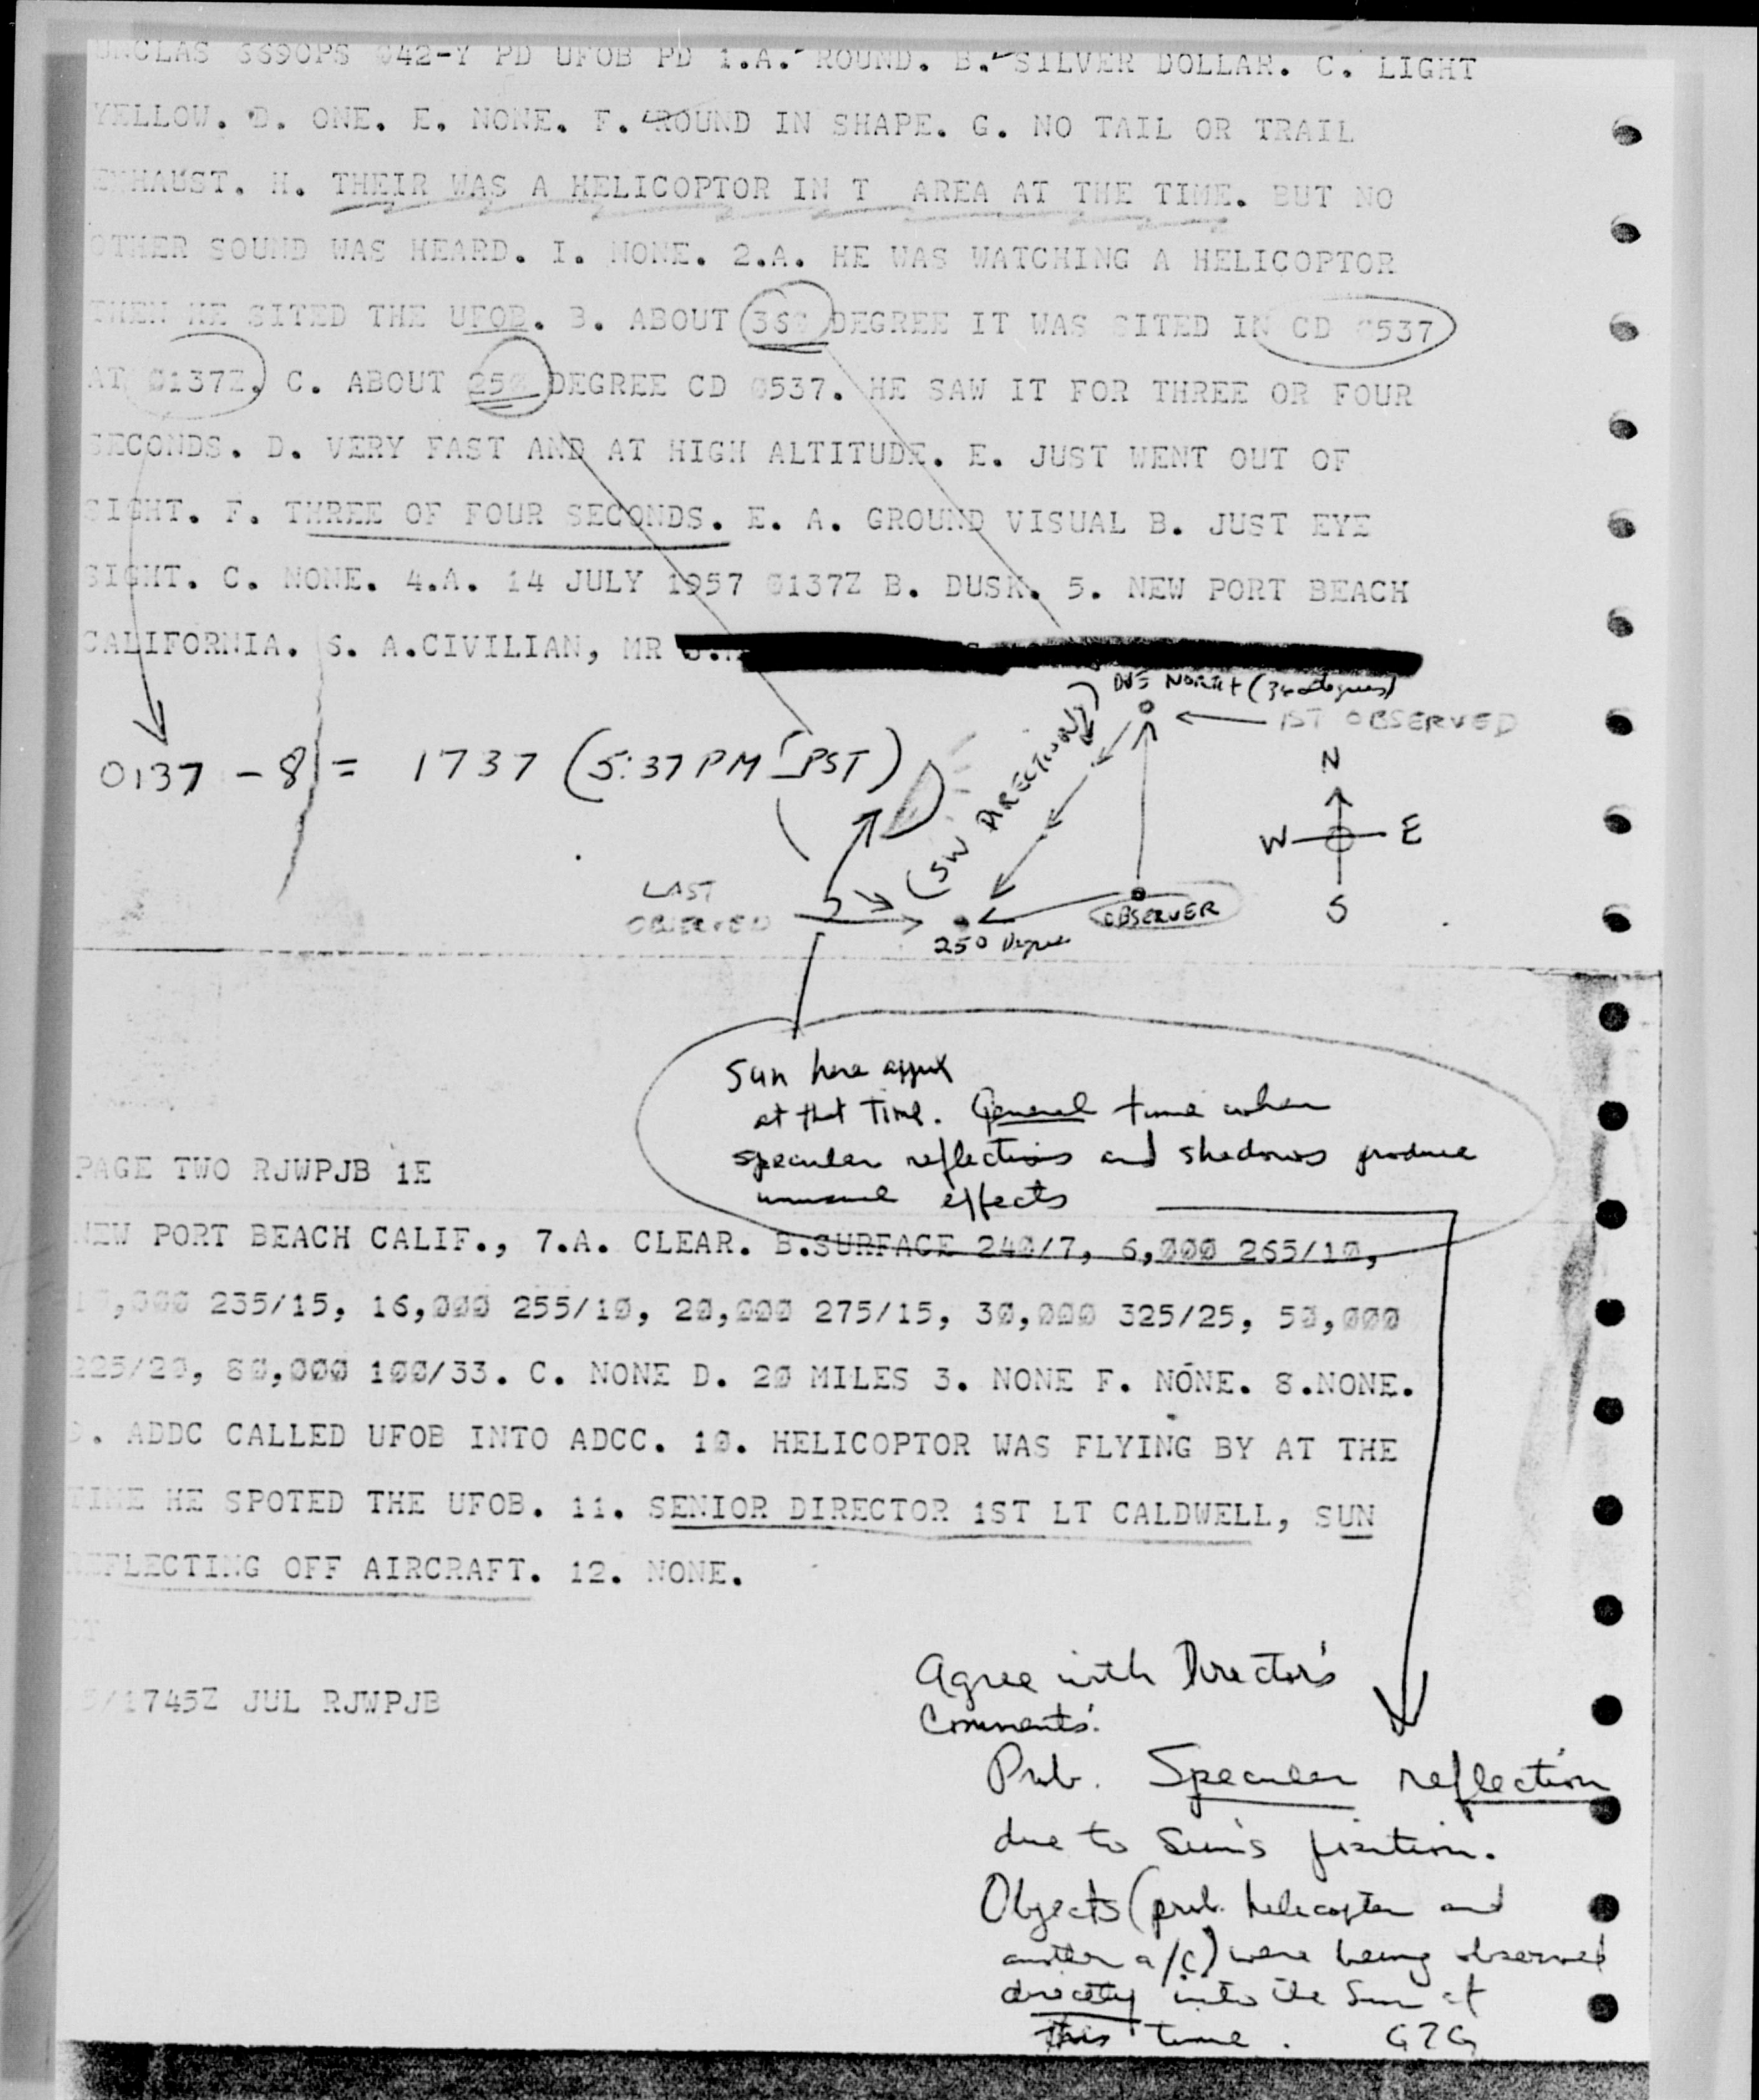 UNCLAS 669OPS 042-Y PD UFOB PD 1.A. ROUND. B. SILVER DOLLAR. C. LIGHT
YELLOW. D. ONE. E. NONE. F. ROUND IN SHAPE. G. NO TAIL OR TRAIL
EXHAUST. H. THEIR WAS A HELICOPTOR IN T AREA AT THE TIME. BUT NO
OTHER SOUND WAS HEARD. I. NONE. 2.A. HE WAS WATCHING A HELICOPTOR
THEN HE SITED THE UFOB. B. ABOUT 360 DEGREE IT WAS SITED IN CD 0537
AT 0137Z. C. ABOUT 250 DEGREE CD 0537. HE SAW IT FOR THREE OR FOUR
SECONDS. D. VERY FAST AND AT HIGH ALTITUDE. E. JUST WENT OUT OF
SIGHT. F. THREE OF FOUR SECONDS. E. A. GROUND VISUAL B. JUST EYE
SIGHT. C. NONE. 4.A. 14 JULY 1957 0137Z B. DUSK. 5. NEW PORT BEACH
CALIFORNIA. S. A.CIVILIAN, MR
DUE NORTH (360 degrees)
1ST OBSERVED
0137 - 8 = 1737 (5:37 PM PST)
(SW DIRECTION)
N
W E
S
LAST
OBSERVED
OBSERVER
250 Degrees
Sun here approx
at that Time. General time when
specular reflections and shadows produce
unusual effects
PAGE TWO RJWPJB 1E
NEW PORT BEACH CALIF., 7.A. CLEAR. B.SURFACE 240/7, 6,000 265/10,
10,000 235/15, 16,000 255/10, 20,000 275/15, 30,000 325/25, 50,000
225/20, 80,000 100/33. C. NONE D. 20 MILES 3. NONE F. NONE. 8.NONE.
9. ADDC CALLED UFOB INTO ADCC. 10. HELICOPTOR WAS FLYING BY AT THE
TIME HE SPOTED THE UFOB. 11. SENIOR DIRECTOR 1ST LT CALDWELL, SUN
REFLECTING OFF AIRCRAFT. 12. NONE.
/1745Z JUL RJWPJB
Agree with Director's
Comments.
Prob. Specular reflection
due to Sun's position.
Objects (prob. helicopter and
another a/c) were being observed
directly into the Sun at
this time. G7G